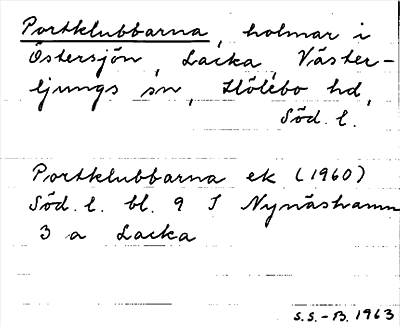 Portklubbarna, holmar i
Östersjön, Lacka, Väster-
ljungs sn, Hölebo hd,
Söd. l.
Portklubbarna ek (1960)
Söd. l. bl. 9 I Nynäshamn
3 a Lacka
S.S.-B. 1963